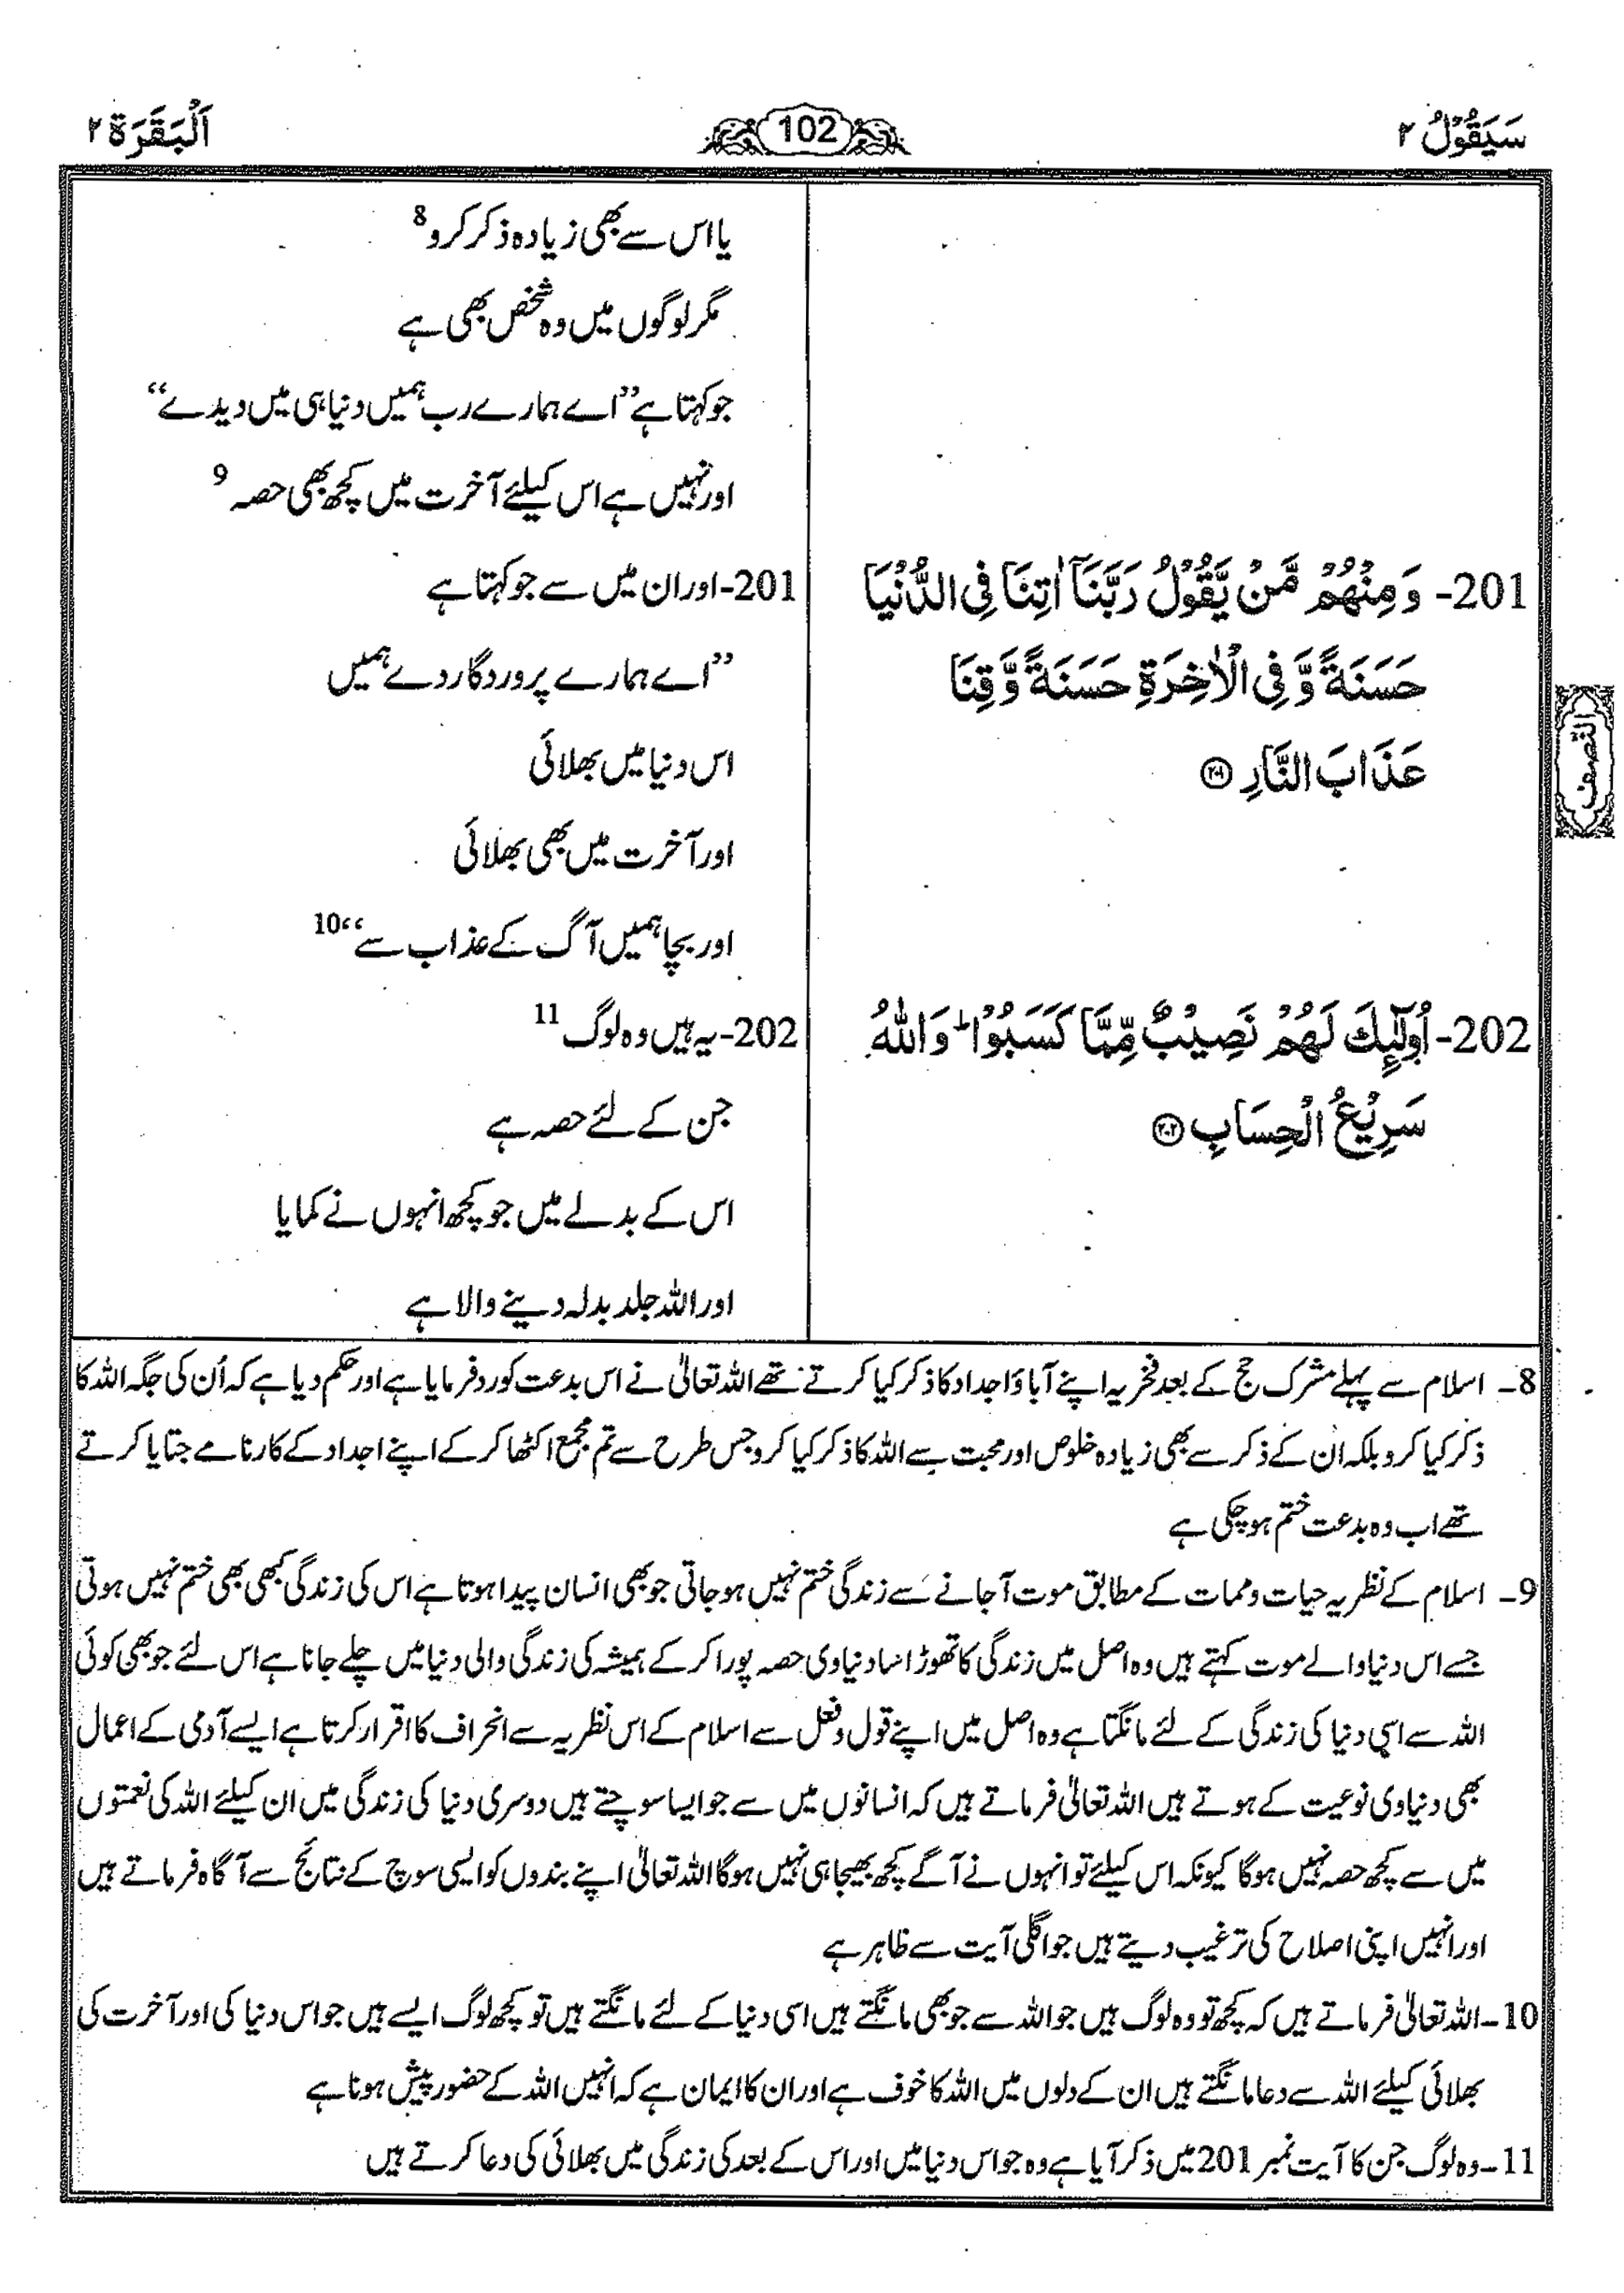 سَيَقُوْلُ ٢
102
اَلْبَقَرَة ٢
یا اس سے بھی زیادہ ذکر کرو 8
مگر لوگوں میں وہ شخص بھی ہے
جو کہتا ہے ”اے ہمارے رب ہمیں دنیا ہی میں دیدے“
اور نہیں ہے اس کیلئے آخرت میں کچھ بھی حصہ 9
201- وَمِنْهُمْ مَّنْ يَّقُوْلُ رَبَّنَآ اٰتِنَا فِى الدُّنْيَا
حَسَنَةً وَّ فِى الْاٰخِرَةِ حَسَنَةً وَّ قِنَا
عَذَابَ النَّارِ ۲۰۱
201- اور ان میں سے جو کہتا ہے
”اے ہمارے پروردگار دے ہمیں
اس دنیا میں بھلائی
اور آخرت میں بھی بھلائی
اور بچا ہمیں آگ کے عذاب سے“ 10
202- اُولٰٓئِكَ لَهُمْ نَصِيْبٌ مِّمَّا كَسَبُوْا ؕ وَاللّٰهُ
سَرِيْعُ الْحِسَابِ ۲۰۲
202- یہ ہیں وہ لوگ 11
جن کے لئے حصہ ہے
اس کے بدلے میں جو کچھ انہوں نے کمایا
اور اللہ جلد بدلہ دینے والا ہے
النصف
8- اسلام سے پہلے مشرک حج کے بعد فخریہ اپنے آباؤ اجداد کا ذکر کیا کرتے تھے اللہ تعالیٰ نے اس بدعت کو رد فرمایا ہے اور حکم دیا ہے کہ اُن کی جگہ اللہ کا
ذکر کیا کرو بلکہ ان کے ذکر سے بھی زیادہ خلوص اور محبت سے اللہ کا ذکر کیا کرو جس طرح سے تم مجمع اکٹھا کر کے اپنے اجداد کے کارنامے جتایا کرتے
تھے اب وہ بدعت ختم ہو چکی ہے
9- اسلام کے نظریہ حیات و ممات کے مطابق موت آجانے سے زندگی ختم نہیں ہو جاتی جو بھی انسان پیدا ہوتا ہے اس کی زندگی کبھی بھی ختم نہیں ہوتی
جسے اس دنیا والے موت کہتے ہیں وہ اصل میں زندگی کا تھوڑا سا دنیاوی حصہ پورا کر کے ہمیشہ کی زندگی والی دنیا میں چلے جانا ہے اس لئے جو بھی کوئی
اللہ سے اسی دنیا کی زندگی کے لئے مانگتا ہے وہ اصل میں اپنے قول و فعل سے اسلام کے اس نظریہ سے انحراف کا اقرار کرتا ہے ایسے آدمی کے اعمال
بھی دنیاوی نوعیت کے ہوتے ہیں اللہ تعالیٰ فرماتے ہیں کہ انسانوں میں سے جو ایسا سوچتے ہیں دوسری دنیا کی زندگی میں ان کیلئے اللہ کی نعمتوں
میں سے کچھ حصہ نہیں ہوگا کیونکہ اس کیلئے تو انہوں نے آگے کچھ بھیجا ہی نہیں ہوگا اللہ تعالیٰ اپنے بندوں کو ایسی سوچ کے نتائج سے آگاہ فرماتے ہیں
اور انہیں اپنی اصلاح کی ترغیب دیتے ہیں جو اگلی آیت سے ظاہر ہے
10- اللہ تعالیٰ فرماتے ہیں کہ کچھ تو وہ لوگ ہیں جو اللہ سے جو بھی مانگتے ہیں اسی دنیا کے لئے مانگتے ہیں تو کچھ لوگ ایسے ہیں جو اس دنیا کی اور آخرت کی
بھلائی کیلئے اللہ سے دعا مانگتے ہیں ان کے دلوں میں اللہ کا خوف ہے اور ان کا ایمان ہے کہ انہیں اللہ کے حضور پیش ہونا ہے
11- وہ لوگ جن کا آیت نمبر 201 میں ذکر آیا ہے وہ جو اس دنیا میں اور اس کے بعد کی زندگی میں بھلائی کی دعا کرتے ہیں